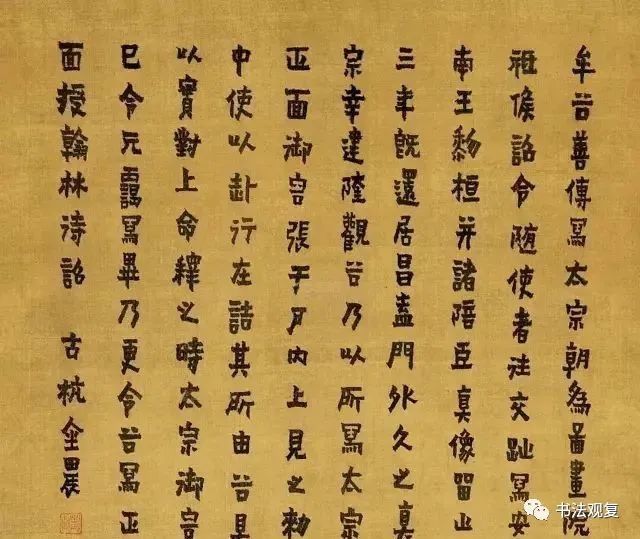 牟谷善傳冩太宗朝為圖畫院
祗候詔令随使者往交趾冩安
南王黎桓并諸陪臣真像留止
三年既還居昌盍門外久之真
宗幸建隆觀谷乃以所冩太宗
正面御容張于户内上見之勑
中使以赴行在詰其所由谷具
以實對上命釋之時太宗御容
已令元靄冩畢乃更令谷冩正
面授翰林待詔 古杭金農
书法观复